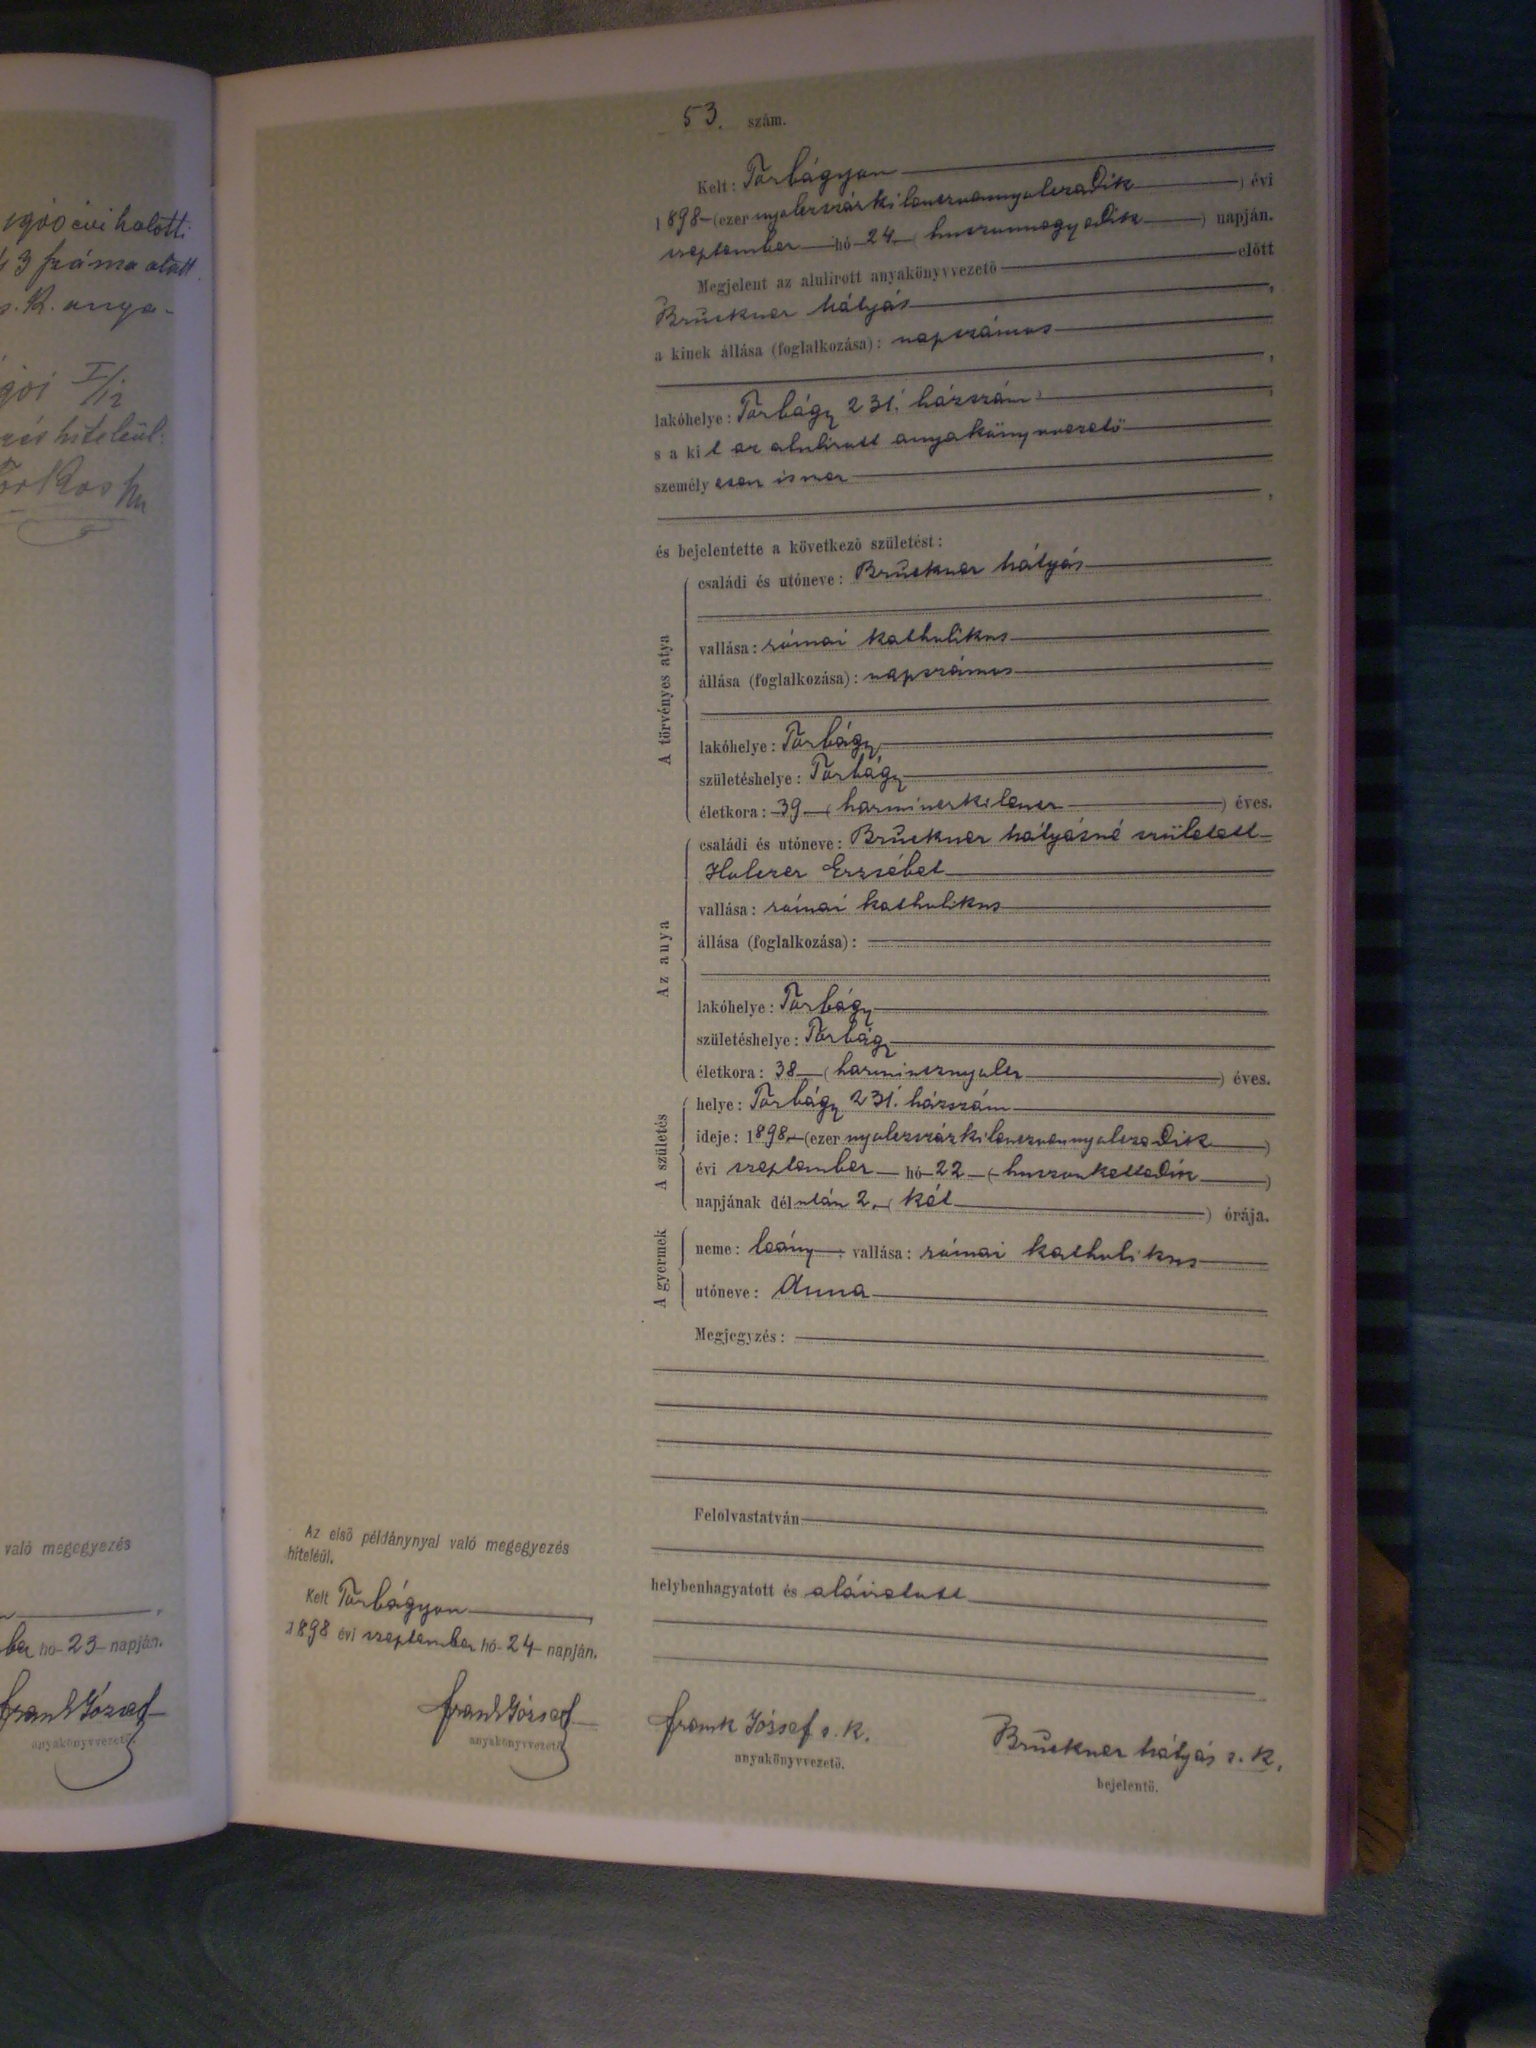 1900 évi halotti
43 száma alatt
s. k. anya-
I/12
hiteléül.
való megegyezés
hó 23 napján.
Frank József
anyakönyvvezető.
53. szám.
Kelt: Torbágyon
1898 (ezer nyolczszázkilenczvennyolczadik) évi
szeptember hó 24 (huszonnegyedik) napján.
Megjelent az alulirott anyakönyvvezető előtt
Bruckner Mátyás,
a kinek állása (foglalkozása): napszámos
,
lakóhelye: Torbágy 231. házszám,
s a kit az alulirott anyakönyvvezető
személyesen ismer
,
és bejelentette a következő születést:
A törvényes atya
családi és utóneve: Bruckner Mátyás
vallása: római katholikus
állása (foglalkozása): napszámos
lakóhelye: Torbágy
születéshelye: Torbágy
életkora: 39 (harminczkilencz) éves.
Az anya
családi és utóneve: Bruckner Mátyásné született
Holczer Erzsébet
vallása: római katholikus
állása (foglalkozása):
lakóhelye: Torbágy
születéshelye: Torbágy
életkora: 38 (harmincznyolcz) éves.
A születés
helye: Torbágy 231. házszám
ideje: 1898 (ezer nyolczszázkilenczvennyolczadik)
évi szeptember hó 22 (huszonkettedik)
napjának délután 2. (két) órája.
A gyermek
neme: leány; vallása: római katholikus
utóneve: Anna
Megjegyzés:
Felolvastatván
helybenhagyatott és aláiratott
Az első példánynyal való megegyezés
hiteléül.
Kelt Torbágyon,
1898 évi szeptember hó 24 napján.
Frank József
anyakönyvvezető
Frank József s. k.
anyakönyvvezető.
Bruckner Mátyás s. k.
bejelentő.